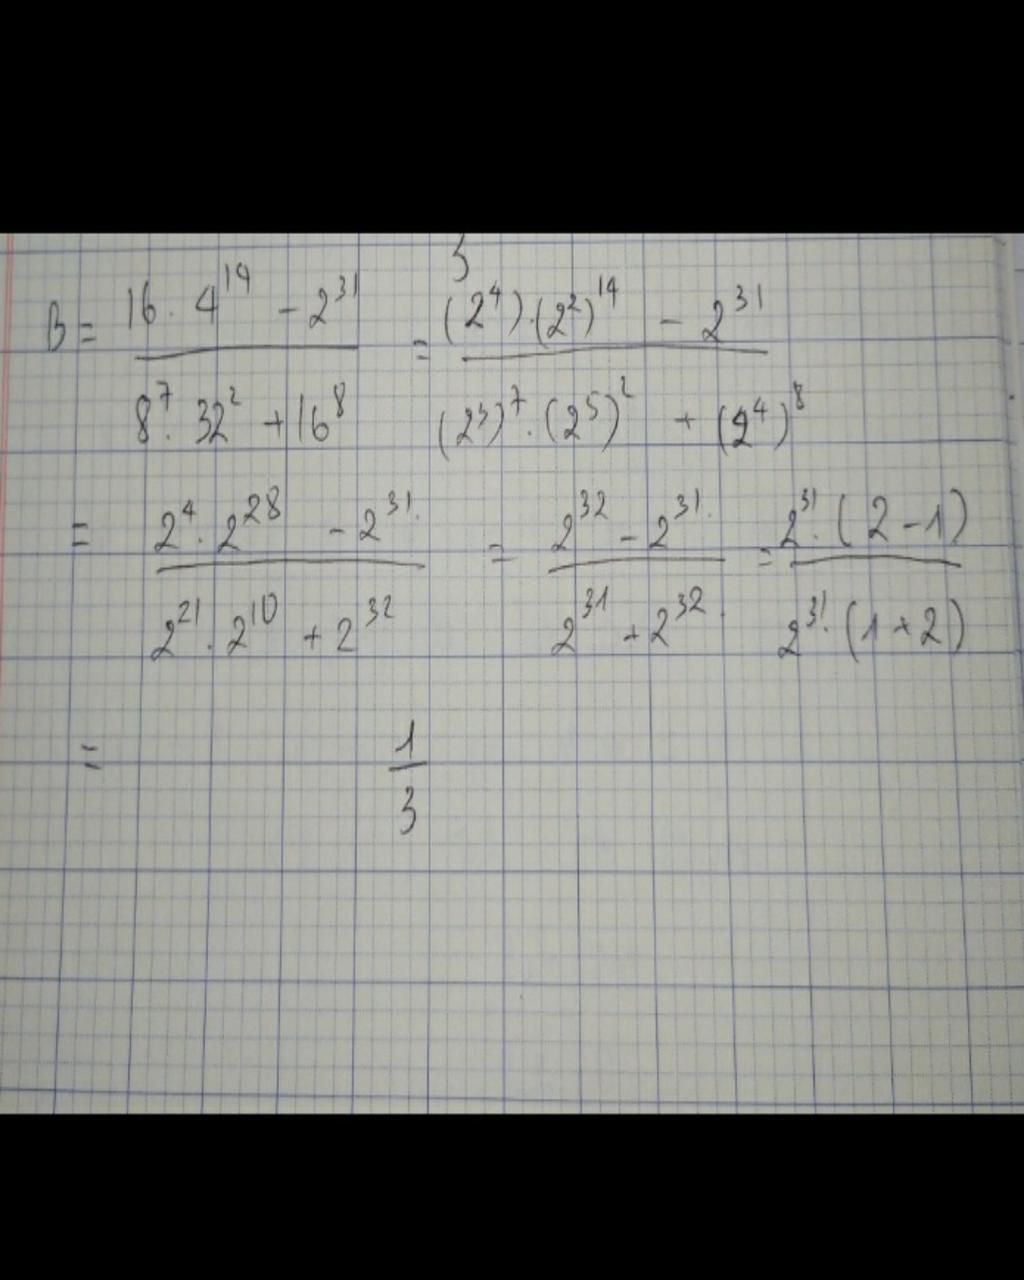 3
B = (16 . 4^14 - 2^31) / (8^7 . 32^2 + 16^8) = ((2^4) . (2^2)^14 - 2^31) / ((2^3)^7 . (2^5)^2 + (2^4)^8)
= (2^4 . 2^28 - 2^31) / (2^21 . 2^10 + 2^32) = (2^32 - 2^31) / (2^31 + 2^32) = (2^31 . (2 - 1)) / (2^31 . (1 + 2))
= 1 / 3